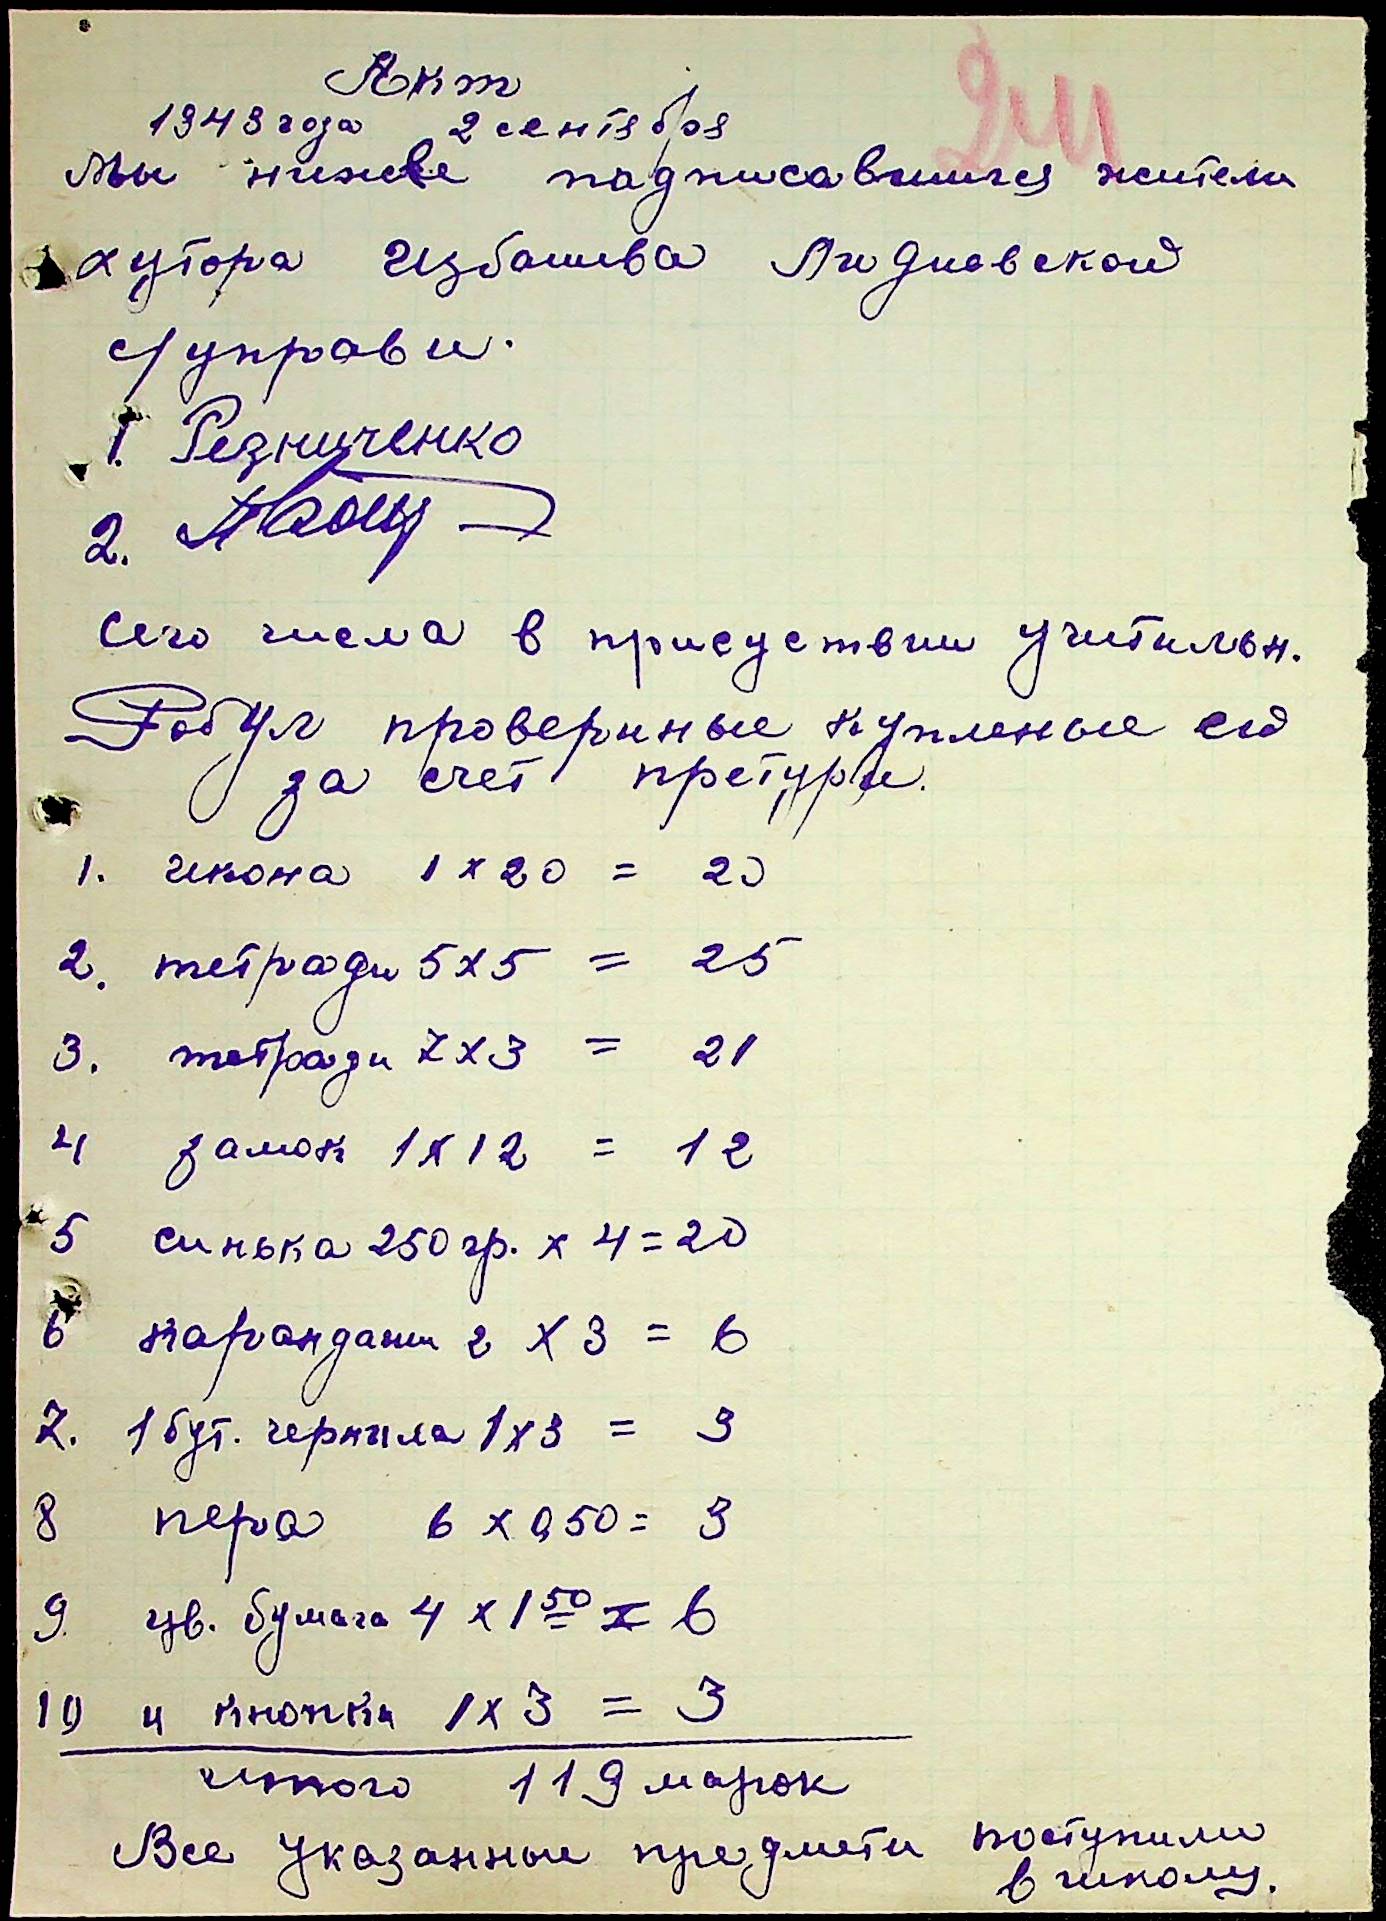 Акт
1943 года 2 сентября
Мы нижее падписавшися жители
хутора Избашева
с/управи.
1. Резниченко
2.
Сего числа в присуствии учительн.
Робул проверинные купленые ею
за счет претури.
1. икона 1 х 20 = 20
2. тетради 5 х 5 = 25
3. тетради 7 х 3 = 21
4 замок 1 х 12 = 12
5 синька 250 гр. х 4 = 20
6 карандаши 2 х 3 = 6
7. 1 бут. чернила 1 х 3 = 3
8 пера 6 х 0,50 = 3
9. цв. бумага 4 х 1 50 = 6
10 и кнопки 1 х 3 = 3
итого 119 марок
Все указанные предмети поступили
в школу.